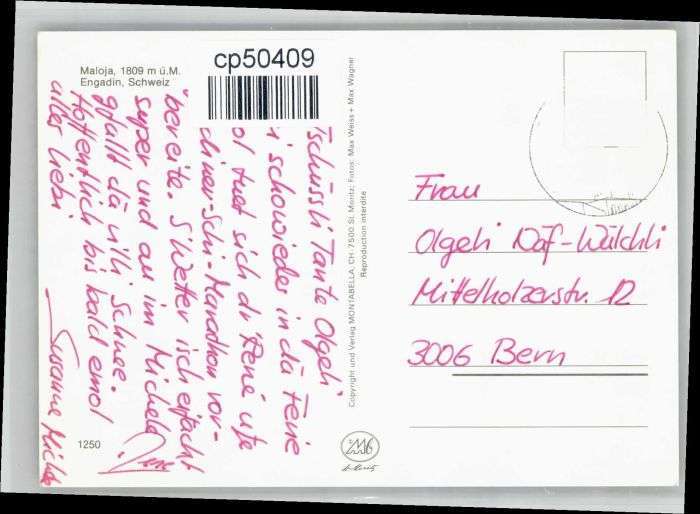 Maloja, 1809 m ü.M.
Engadin, Schweiz
cp50409
Tschüssli Tante Olgeli
schowieder in dä Ferie
tuet sich dr René ufe
Schi-Marathon vor-
bereite. S'Wetter isch eifacht
super und au im Michele
gfallt dä villi Schnee.
Hoffentlich bis bald emol
alles liebi
Susanne Michele
René
1250
Copyright und Verlag MONTABELLA, CH-7500 St. Moritz; Fotos: Max Weiss + Max Wagner
Reproduction interdite
St. Moritz
Frau
Olgeli Näf-Wälchli
Mittelholzerstr. 12
3006 Bern